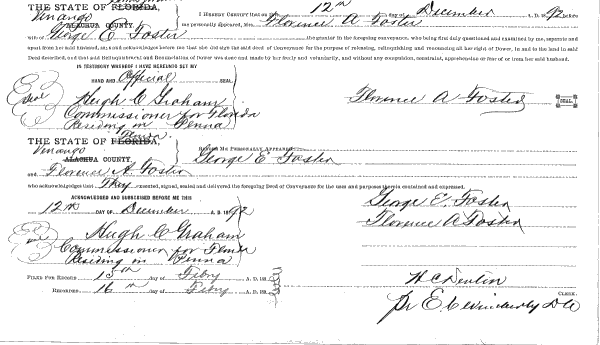 THE STATE OF FLORIDA,
Venango
ALACHUA COUNTY.
I HEREBY CERTIFY that on the 12th day of December A. D. 1892 before
me personally appeared, Mrs. Florence A Foster
wife of George E Foster the grantor in the foregoing conveyance, who being first duly questioned and examined by me, separate and
apart from her said husband, did acknowledge before me that she did sign the said deed of Conveyance for the purpose of releasing, relinquishing and renouncing all her right of Dower, in and to the land in said
Deed described, and that said Relinquishment and Renunciation of Dower was done and made by her freely and voluntarily, and without any compulsion, constraint, apprehension or fear of or from her said husband.
IN TESTIMONY WHEREOF I HAVE HEREUNTO SET MY
HAND AND Official SEAL.
Seal
Hugh C Graham
Commissioner for Florida
Residing in Penna
Florence A Foster SEAL.
Penna.
THE STATE OF FLORIDA,
Venango
ALACHUA COUNTY.
BEFORE ME PERSONALLY APPEARED George E Foster
and Florence A Foster
who acknowledges that They executed, signed, sealed and delivered the foregoing Deed of Conveyance for the uses and purposes therein contained and expressed.
ACKNOWLEDGED AND SUBSCRIBED BEFORE ME THIS
12th DAY OF December A. D. 1892
George E. Foster
Florence A Foster
Hugh C Graham
Commissioner for Florida
Residing in Penna
FILED FOR RECORD 15th day of Feby A. D. 189
RECORDED 16th day of Feby A. D. 189
H C Denton
CLERK.
Pr E C Wimberly D C